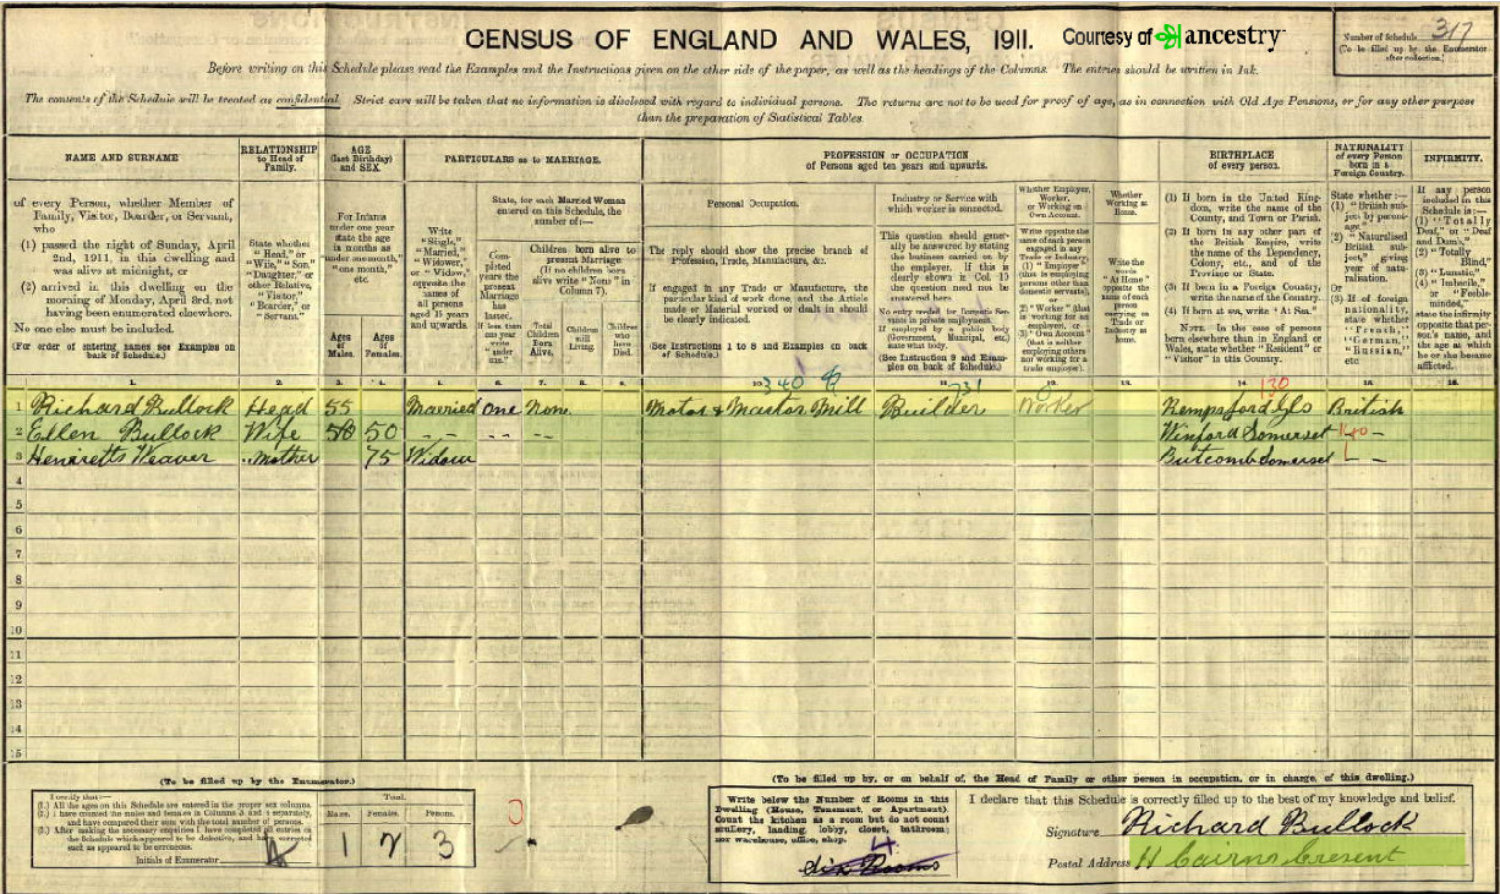 CENSUS OF ENGLAND AND WALES, 1911.
Courtesy of ancestry
Number of Schedule 317
(To be filled up by the Enumerator
after collection.)
Before writing on this Schedule please read the Examples and the Instructions given on the other side of the paper, as well as the headings of the Columns. The entries should be written in Ink.
The contents of the Schedule will be treated as confidential. Strict care will be taken that no information is disclosed with regard to individual persons. The returns are not to be used for proof of age, as in connection with Old Age Pensions, or for any other purpose
than the preparation of Statistical Tables.
NAME AND SURNAME
RELATIONSHIP
to Head of
Family.
AGE
(last Birthday)
and SEX.
PARTICULARS as to MARRIAGE.
PROFESSION or OCCUPATION
of Persons aged ten years and upwards.
BIRTHPLACE
of every person.
NATIONALITY
of every Person
born in a
Foreign Country.
INFIRMITY.
of every Person, whether Member of
Family, Visitor, Boarder, or Servant,
who
(1) passed the night of Sunday, April
2nd, 1911, in this dwelling and
was alive at midnight, or
(2) arrived in this dwelling on the
morning of Monday, April 3rd, not
having been enumerated elsewhere.
No one else must be included.
(For order of entering names see Examples on
back of Schedule.)
State whether
"Head," or
"Wife," "Son,"
"Daughter," or
other Relative,
"Visitor,"
"Boarder," or
"Servant."
For Infants
under one year
state the age
in months as
"under one month,"
"one month,"
etc.
Ages
of
Males.
Ages
of
Females.
Write
"Single,"
"Married,"
"Widower,"
or "Widow,"
opposite the
names of
all persons
aged 15 years
and upwards.
State, for each Married Woman
entered on this Schedule, the
number of:—
Completed
years the
present
Marriage
has
lasted.
If less than
one year
write
"under
one."
Children born alive to
present Marriage.
(If no children born
alive write "None" in
Column 7).
Total
Children
Born
Alive.
Children
still
Living.
Children
who
have
Died.
Personal Occupation.
The reply should show the precise branch of
Profession, Trade, Manufacture, &c.
If engaged in any Trade or Manufacture, the
particular kind of work done, and the Article
made or Material worked or dealt in should
be clearly indicated.
(See Instructions 1 to 8 and Examples on back
of Schedule.)
Industry or Service with
which worker is connected.
This question should generally
be answered by stating
the business carried on by
the employer. If this is
clearly shown in Col. 10
the question need not be
answered here.
No entry needed for Domestic Servants
in private employment.
If employed by a public body
(Government, Municipal, etc.)
state what body.
(See Instruction 9 and Examples
on back of Schedule.)
Whether Employer,
Worker,
or Working on
Own Account.
Write opposite the
name of each person
engaged in any
Trade or Industry,
(1) "Employer"
(that is employing
persons other than
domestic servants),
or
(2) "Worker" (that
is working for an
employer), or
(3) "Own Account"
(that is neither
employing others
nor working for a
trade employer).
Whether
Working at
Home.
Write the
words
"At Home"
opposite the
name of each
person
carrying on
Trade or
Industry at
home.
(1) If born in the United Kingdom,
write the name of the
County, and Town or Parish.
(2) If born in any other part of
the British Empire, write
the name of the Dependency,
Colony, etc., and of the
Province or State.
(3) If born in a Foreign Country,
write the name of the Country.
(4) If born at sea, write "At Sea."
NOTE. In the case of persons
born elsewhere than in England or
Wales, state whether "Resident" or
"Visitor" in this Country.
State whether:—
(1) "British subject
by parentage."
(2) "Naturalised
British subject,"
giving
year of naturalisation.
Or
(3) If of foreign
nationality,
state whether
"French,"
"German,"
"Russian,"
etc
If any person
included in this
Schedule is:—
(1) "Totally
Deaf," or "Deaf
and Dumb,"
(2) "Totally
Blind,"
(3) "Lunatic,"
(4) "Imbecile,"
or "Feeble-
minded,"
state the infirmity
opposite that person's
name, and
the age at which
he or she became
afflicted.
1. 2. 3. 4. 5. 6. 7. 8. 9. 10. 11. 12. 13. 14. 15. 16.
340 731 0 130
1 Richard Bullock Head 55 Married One None Motor & Mastar Mill Builder Worker Kempsford Glo British
2 Ellen Bullock Wife 50 50 -- -- -- Winford Somerset -
3 Heniretts Weaver .. Mother 75 Widow Butcomb Somerset - -
4
5
6
7
8
9
10
11
12
13
14
15
(To be filled up by the Enumerator.)
I certify that:—
(1.) All the ages on this Schedule are entered in the proper sex columns.
(2.) I have counted the males and females in Columns 3 and 4 separately,
and have compared their sum with the total number of persons.
(3.) After making the necessary enquiries I have completed all entries on
the Schedule which appeared to be defective, and have corrected
such as appeared to be erroneous.
Initials of Enumerator
Total.
Males. Females. Persons.
1 2 3
0
(To be filled up by, or on behalf of, the Head of Family or other person in occupation, or in charge, of this dwelling.)
Write below the Number of Rooms in this
Dwelling (House, Tenement, or Apartment).
Count the kitchen as a room but do not count
scullery, landing, lobby, closet, bathroom;
nor warehouse, office, shop.
4
Six Rooms
I declare that this Schedule is correctly filled up to the best of my knowledge and belief.
Signature Richard Bullock
Postal Address 11 Cairns Cresent